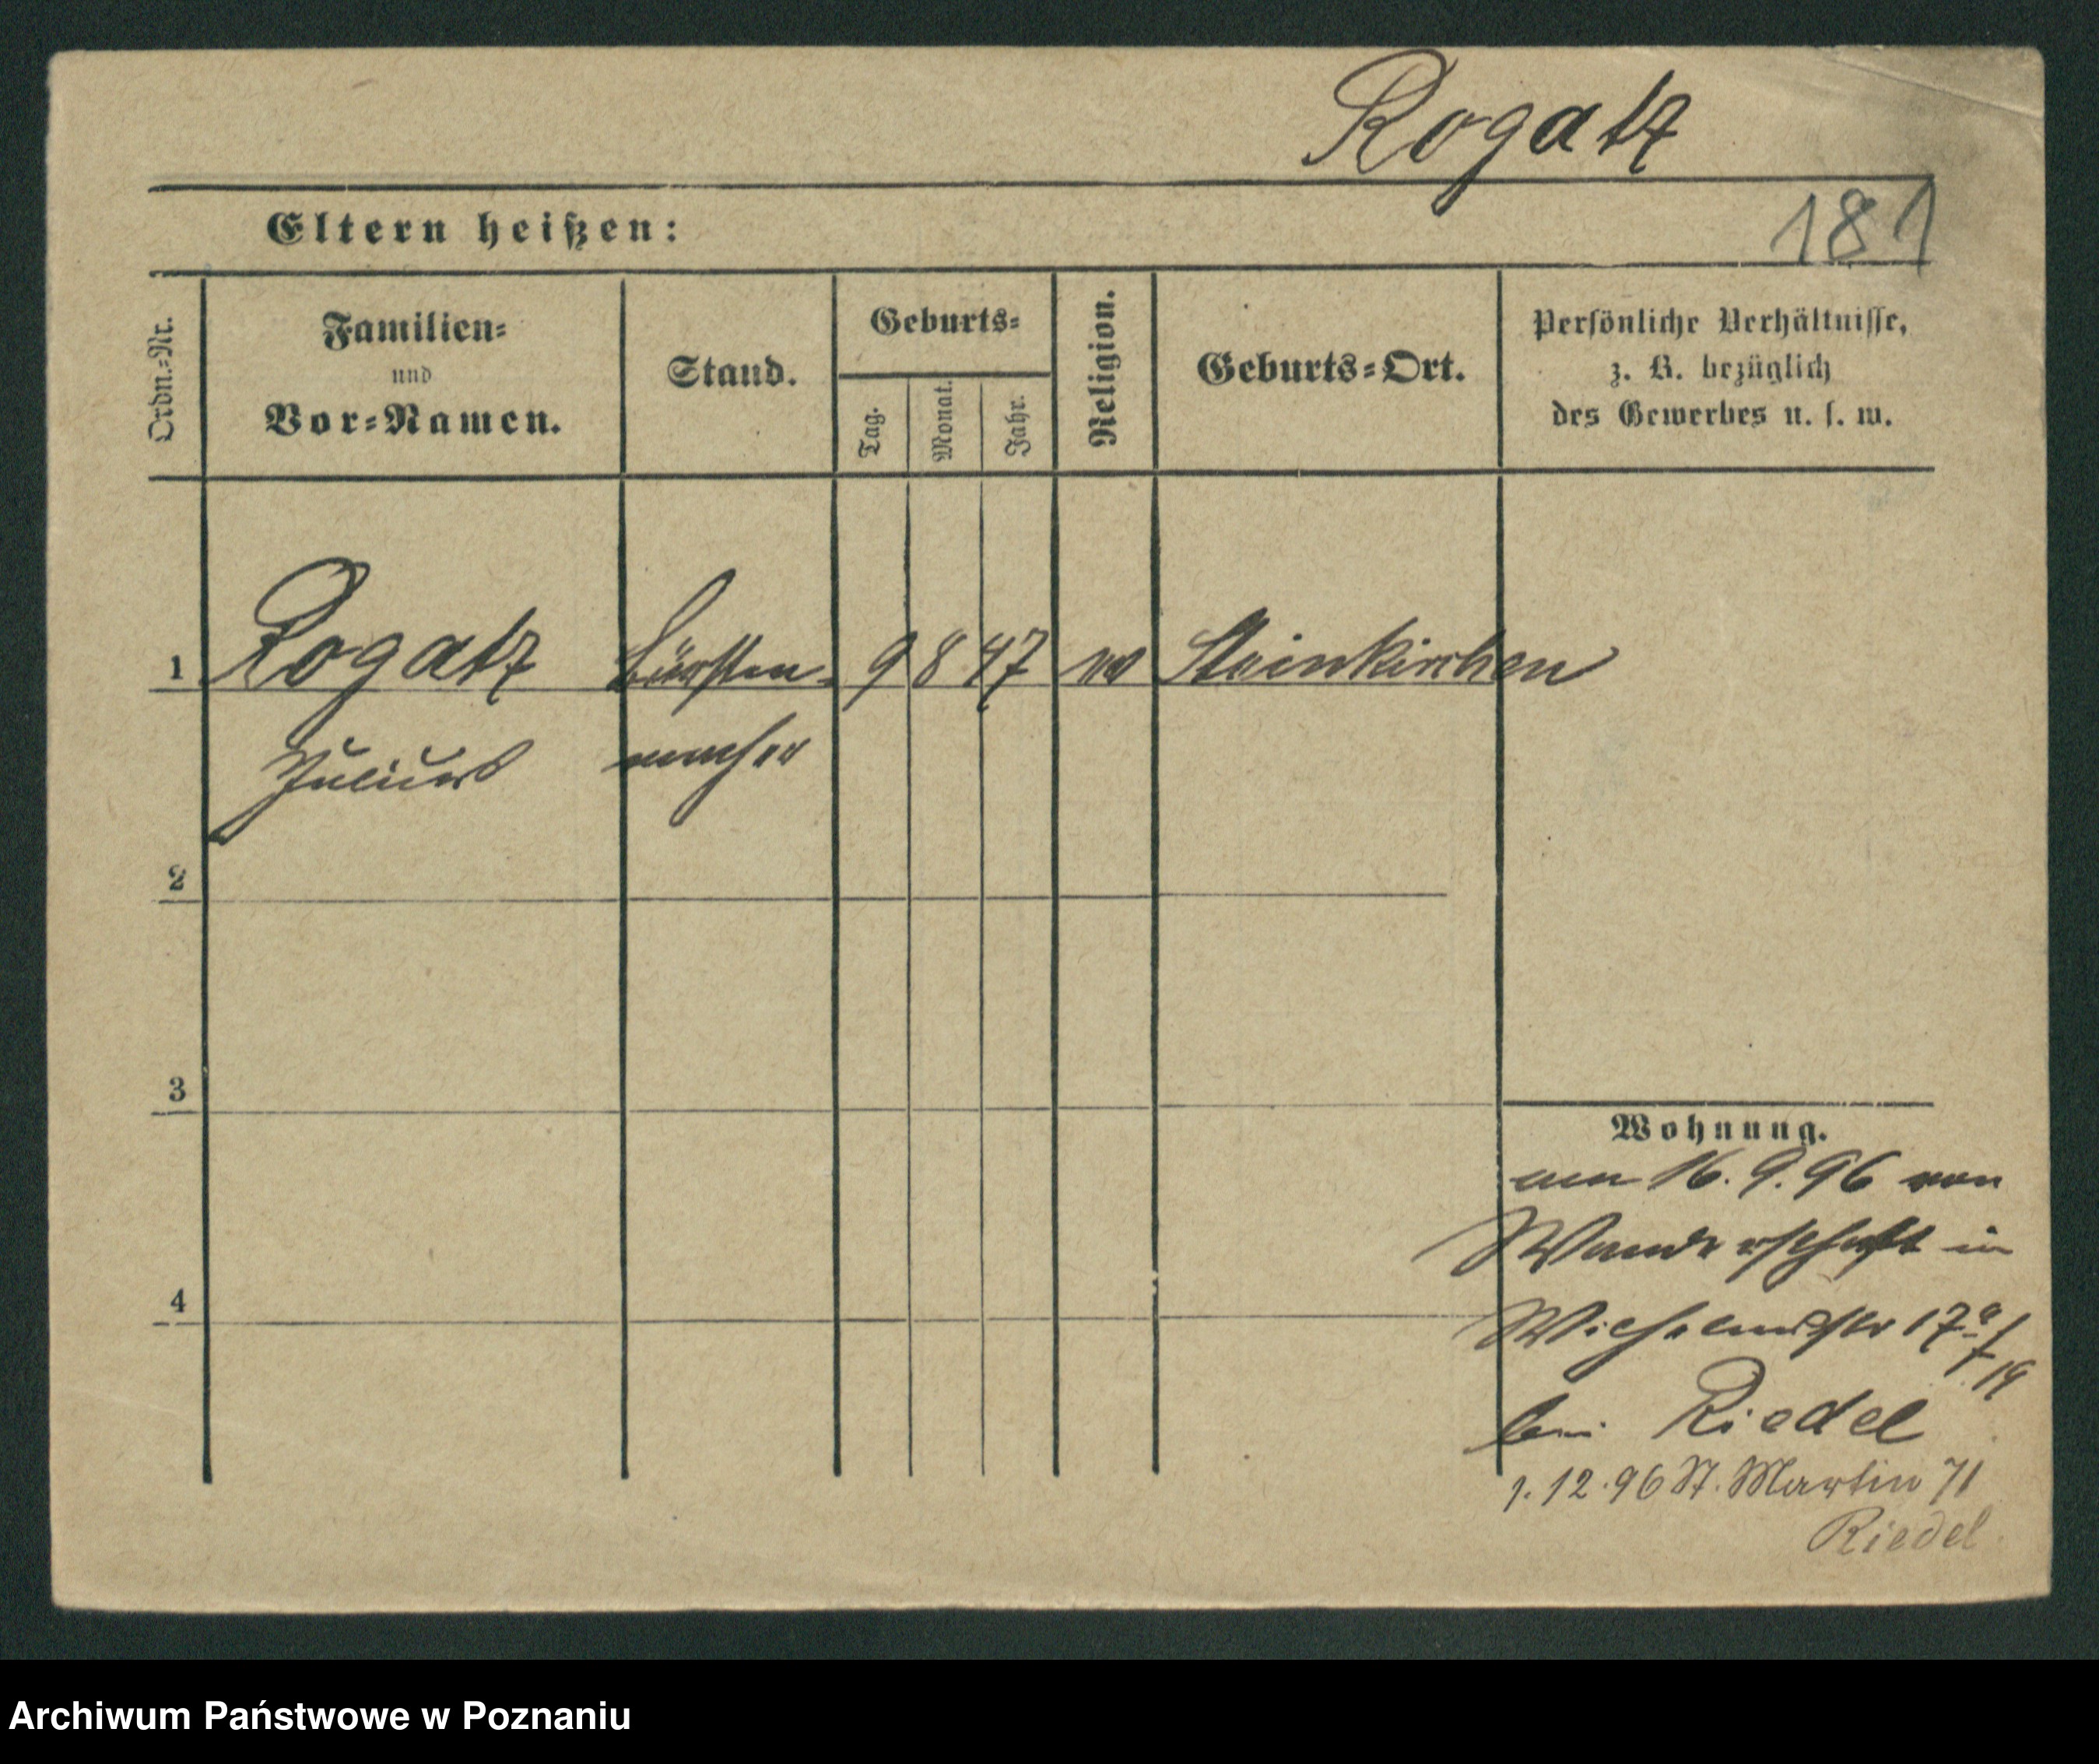 Rogatz
181
Eltern heißen:
Ordn.=Nr.
Familien=
und
Vor=Namen.
Stand.
Geburts=
Tag.
Monat.
Jahr.
Religion.
Geburts=Ort.
Persönliche Verhältnisse,
z. B. bezüglich
des Gewerbes u. s. w.
1 Rogatz Bürsten- 9 8 47 ev Steinkirchen
Julius macher
2
3
4
Wohnung.
am 16. 9. 96 von
Wanderschaft in
Wilhelmstr 17a
bei Riedel
1. 12. 96 St. Martin 71
Riedel
Archiwum Państwowe w Poznaniu